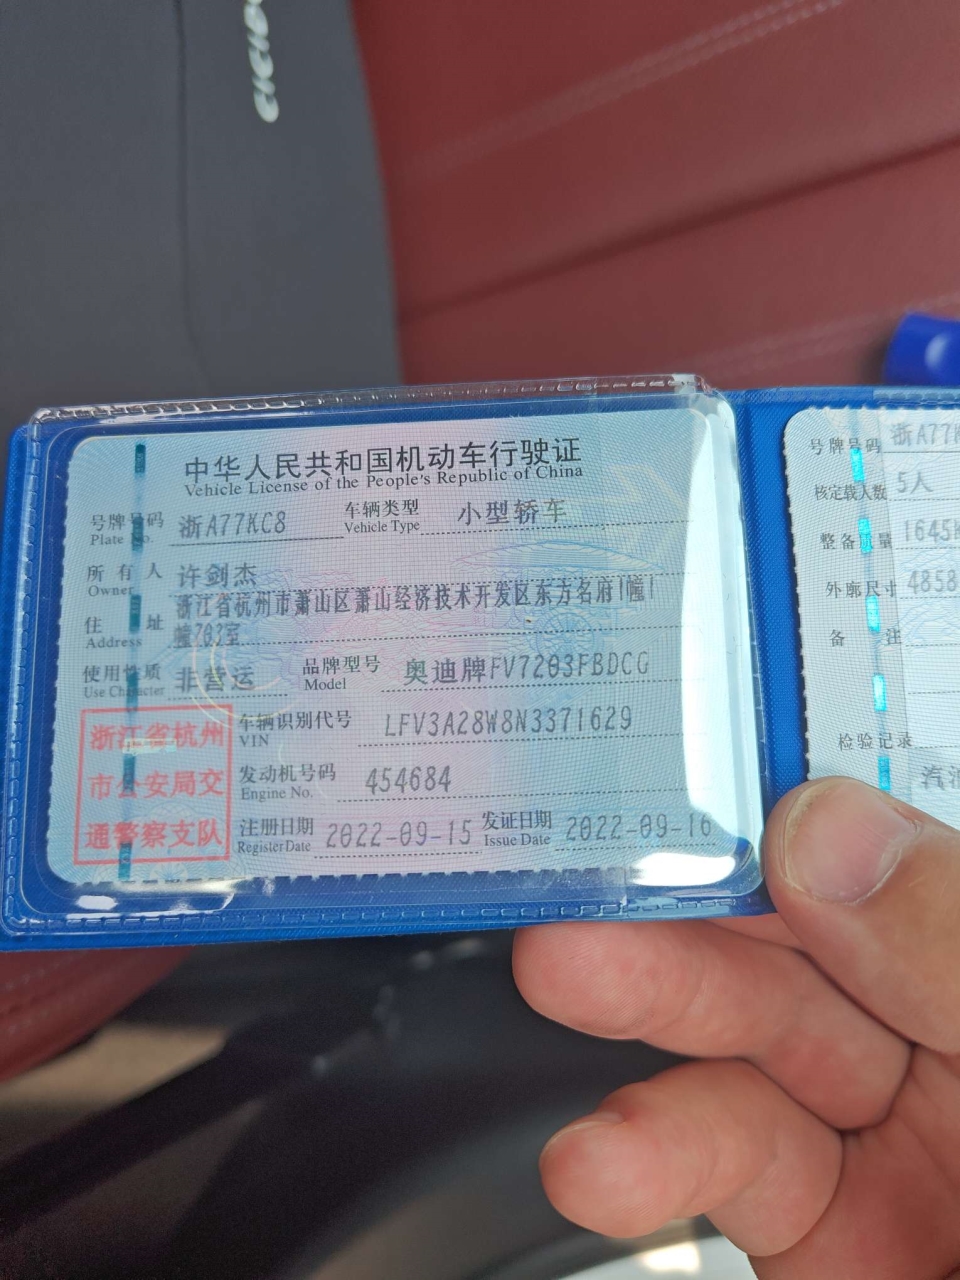 中华人民共和国机动车行驶证
Vehicle License of the People's Republic of China
号牌号码 浙A77KC8 车辆类型 小型轿车
Plate No. Vehicle Type
所有人 许剑杰
Owner
住址 浙江省杭州市萧山区萧山经济技术开发区东方名府1幢1
Address 幢703室
使用性质 非营运 品牌型号 奥迪牌FV7203FBDCG
Use Character Model
车辆识别代号 LFV3A28W8N3371629
VIN
发动机号码 454684
Engine No.
注册日期 2022-09-15 发证日期 2022-09-16
Register Date Issue Date
浙江省杭州
市公安局交
通警察支队
号牌号码 浙A77K
核定载人数 5人
整备质量 1645k
外廓尺寸 4858
备注
检验记录
汽